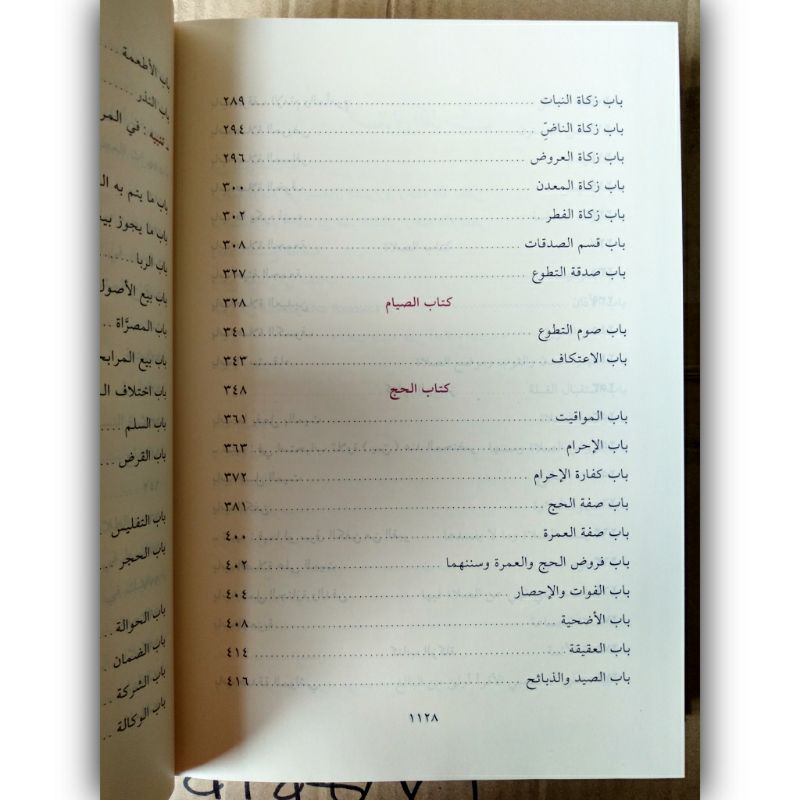 باب زكاة النبات ........ ٢٨٩
باب زكاة الناضّ ........ ٢٩٤
باب زكاة العروض ........ ٢٩٦
باب زكاة المعدن ........ ٣٠٠
باب زكاة الفطر ........ ٣٠٢
باب قسم الصدقات ........ ٣٠٨
باب صدقة التطوع ........ ٣٢٧
كتاب الصيام ٣٢٨
باب صوم التطوع ........ ٣٤١
باب الاعتكاف ........ ٣٤٣
كتاب الحج ٣٤٨
باب المواقيت ........ ٣٦١
باب الإحرام ........ ٣٦٣
باب كفارة الإحرام ........ ٣٧٢
باب صفة الحج ........ ٣٨١
باب صفة العمرة ........ ٤٠٠
باب فروض الحج والعمرة وسننهما ........ ٤٠٢
باب الفوات والإحصار ........ ٤٠٤
باب الأضحية ........ ٤٠٨
باب العقيقة ........ ٤١٤
باب الصيد والذبائح ........ ٤١٦
١١٢٨
باب الأطعمة ...
باب النذر ...
ـ تنبيه : في المر
باب ما يتم به ال
باب ما يجوز بيع
باب الربا ...
باب بيع الأصول
باب المصرَّاة ...
باب بيع المرابح
باب اختلاف ال
باب السلم ...
باب القرض ...
باب التفليس ...
باب الحجر ...
باب الحوالة ...
باب الضمان ...
باب الشركة ...
باب الوكالة ...